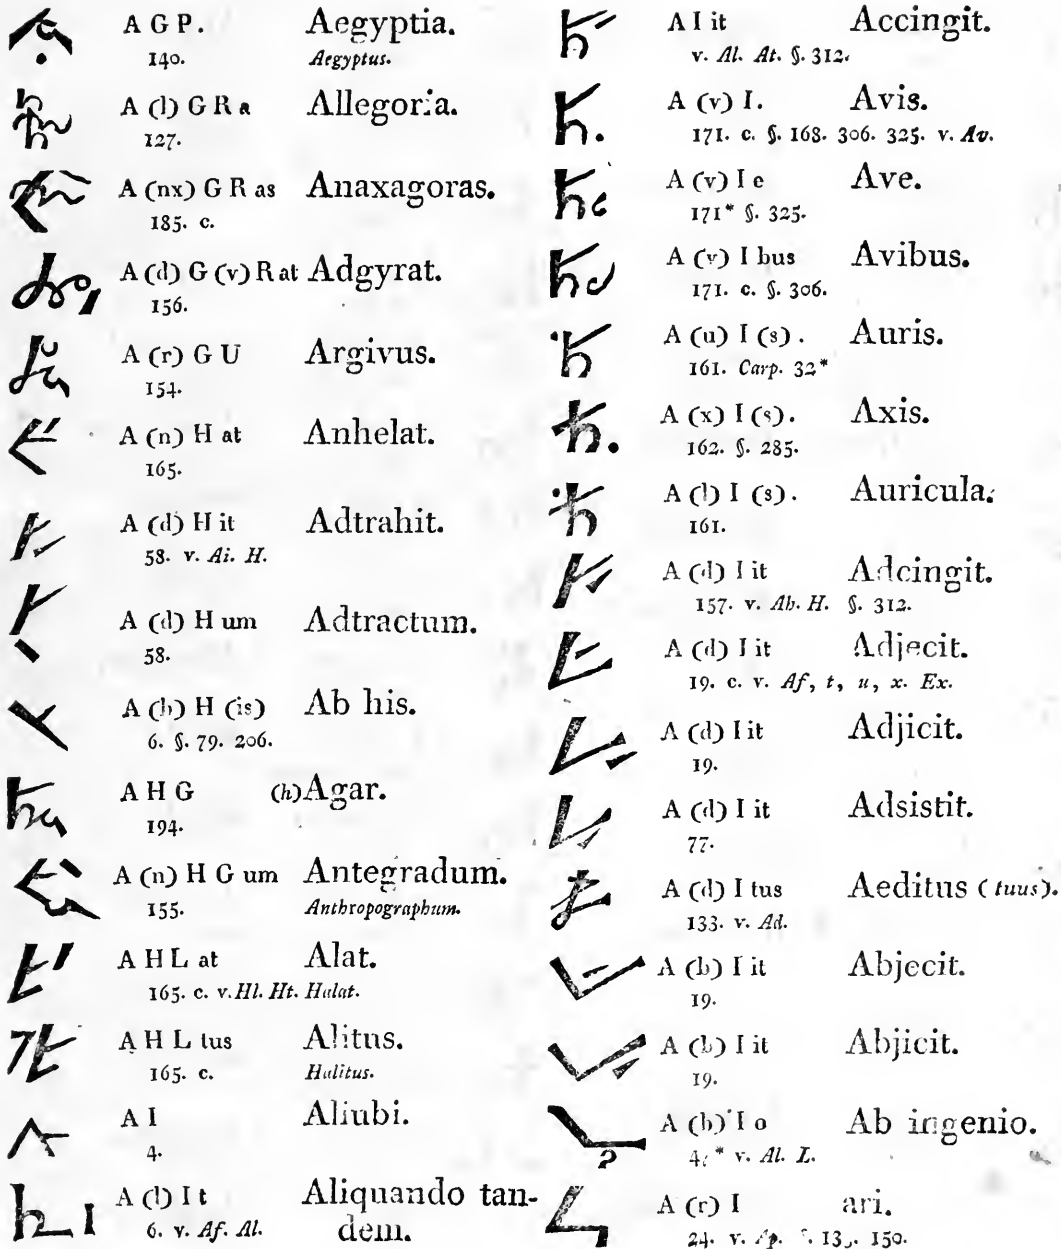 A G P. Aegyptia.
140. Aegyptus.
A (l) G R a Allegoria.
127.
A (nx) G R as Anaxagoras.
185. c.
A (d) G (v) R at Adgyrat.
156.
A (r) G U Argivus.
154.
A (n) H at Anhelat.
165.
A (d) H it Adtrahit.
58. v. Ai. H.
A (d) H um Adtractum.
58.
A (b) H (is) Ab his.
6. §. 79. 206.
A H G (h)Agar.
194.
A (n) H G um Antegradum.
155. Anthropographum.
A H L at Alat.
165. c. v. Hl. Ht. Halat.
A H L tus Alitus.
165. c. Halitus.
A I Aliubi.
4.
A (l) I t Aliquando tan-
6. v. Af. Al. dem.
A I it Accingit.
v. Al. At. §. 312.
A (v) I. Avis.
171. c. §. 168. 306. 325. v. Av.
A (v) I e Ave.
171* §. 325.
A (v) I bus Avibus.
171. c. §. 306.
A (u) I (s). Auris.
161. Carp. 32*
A (x) I (s). Axis.
162. §. 285.
A (l) I (s). Auricula.
161.
A (d) I it Adcingit.
157. v. Ab. H. §. 312.
A (d) I it Adjecit.
19. c. v. Af, t, u, x. Ex.
A (d) I it Adjicit.
19.
A (d) I it Adsistit.
77.
A (d) I tus Aeditus (tuus).
133. v. Ad.
A (b) I it Abjecit.
19.
A (b) I it Abjicit.
19.
A (b) I o Ab ingenio.
4.* v. Al. L.
A (r) I ari.
24. v. 150.